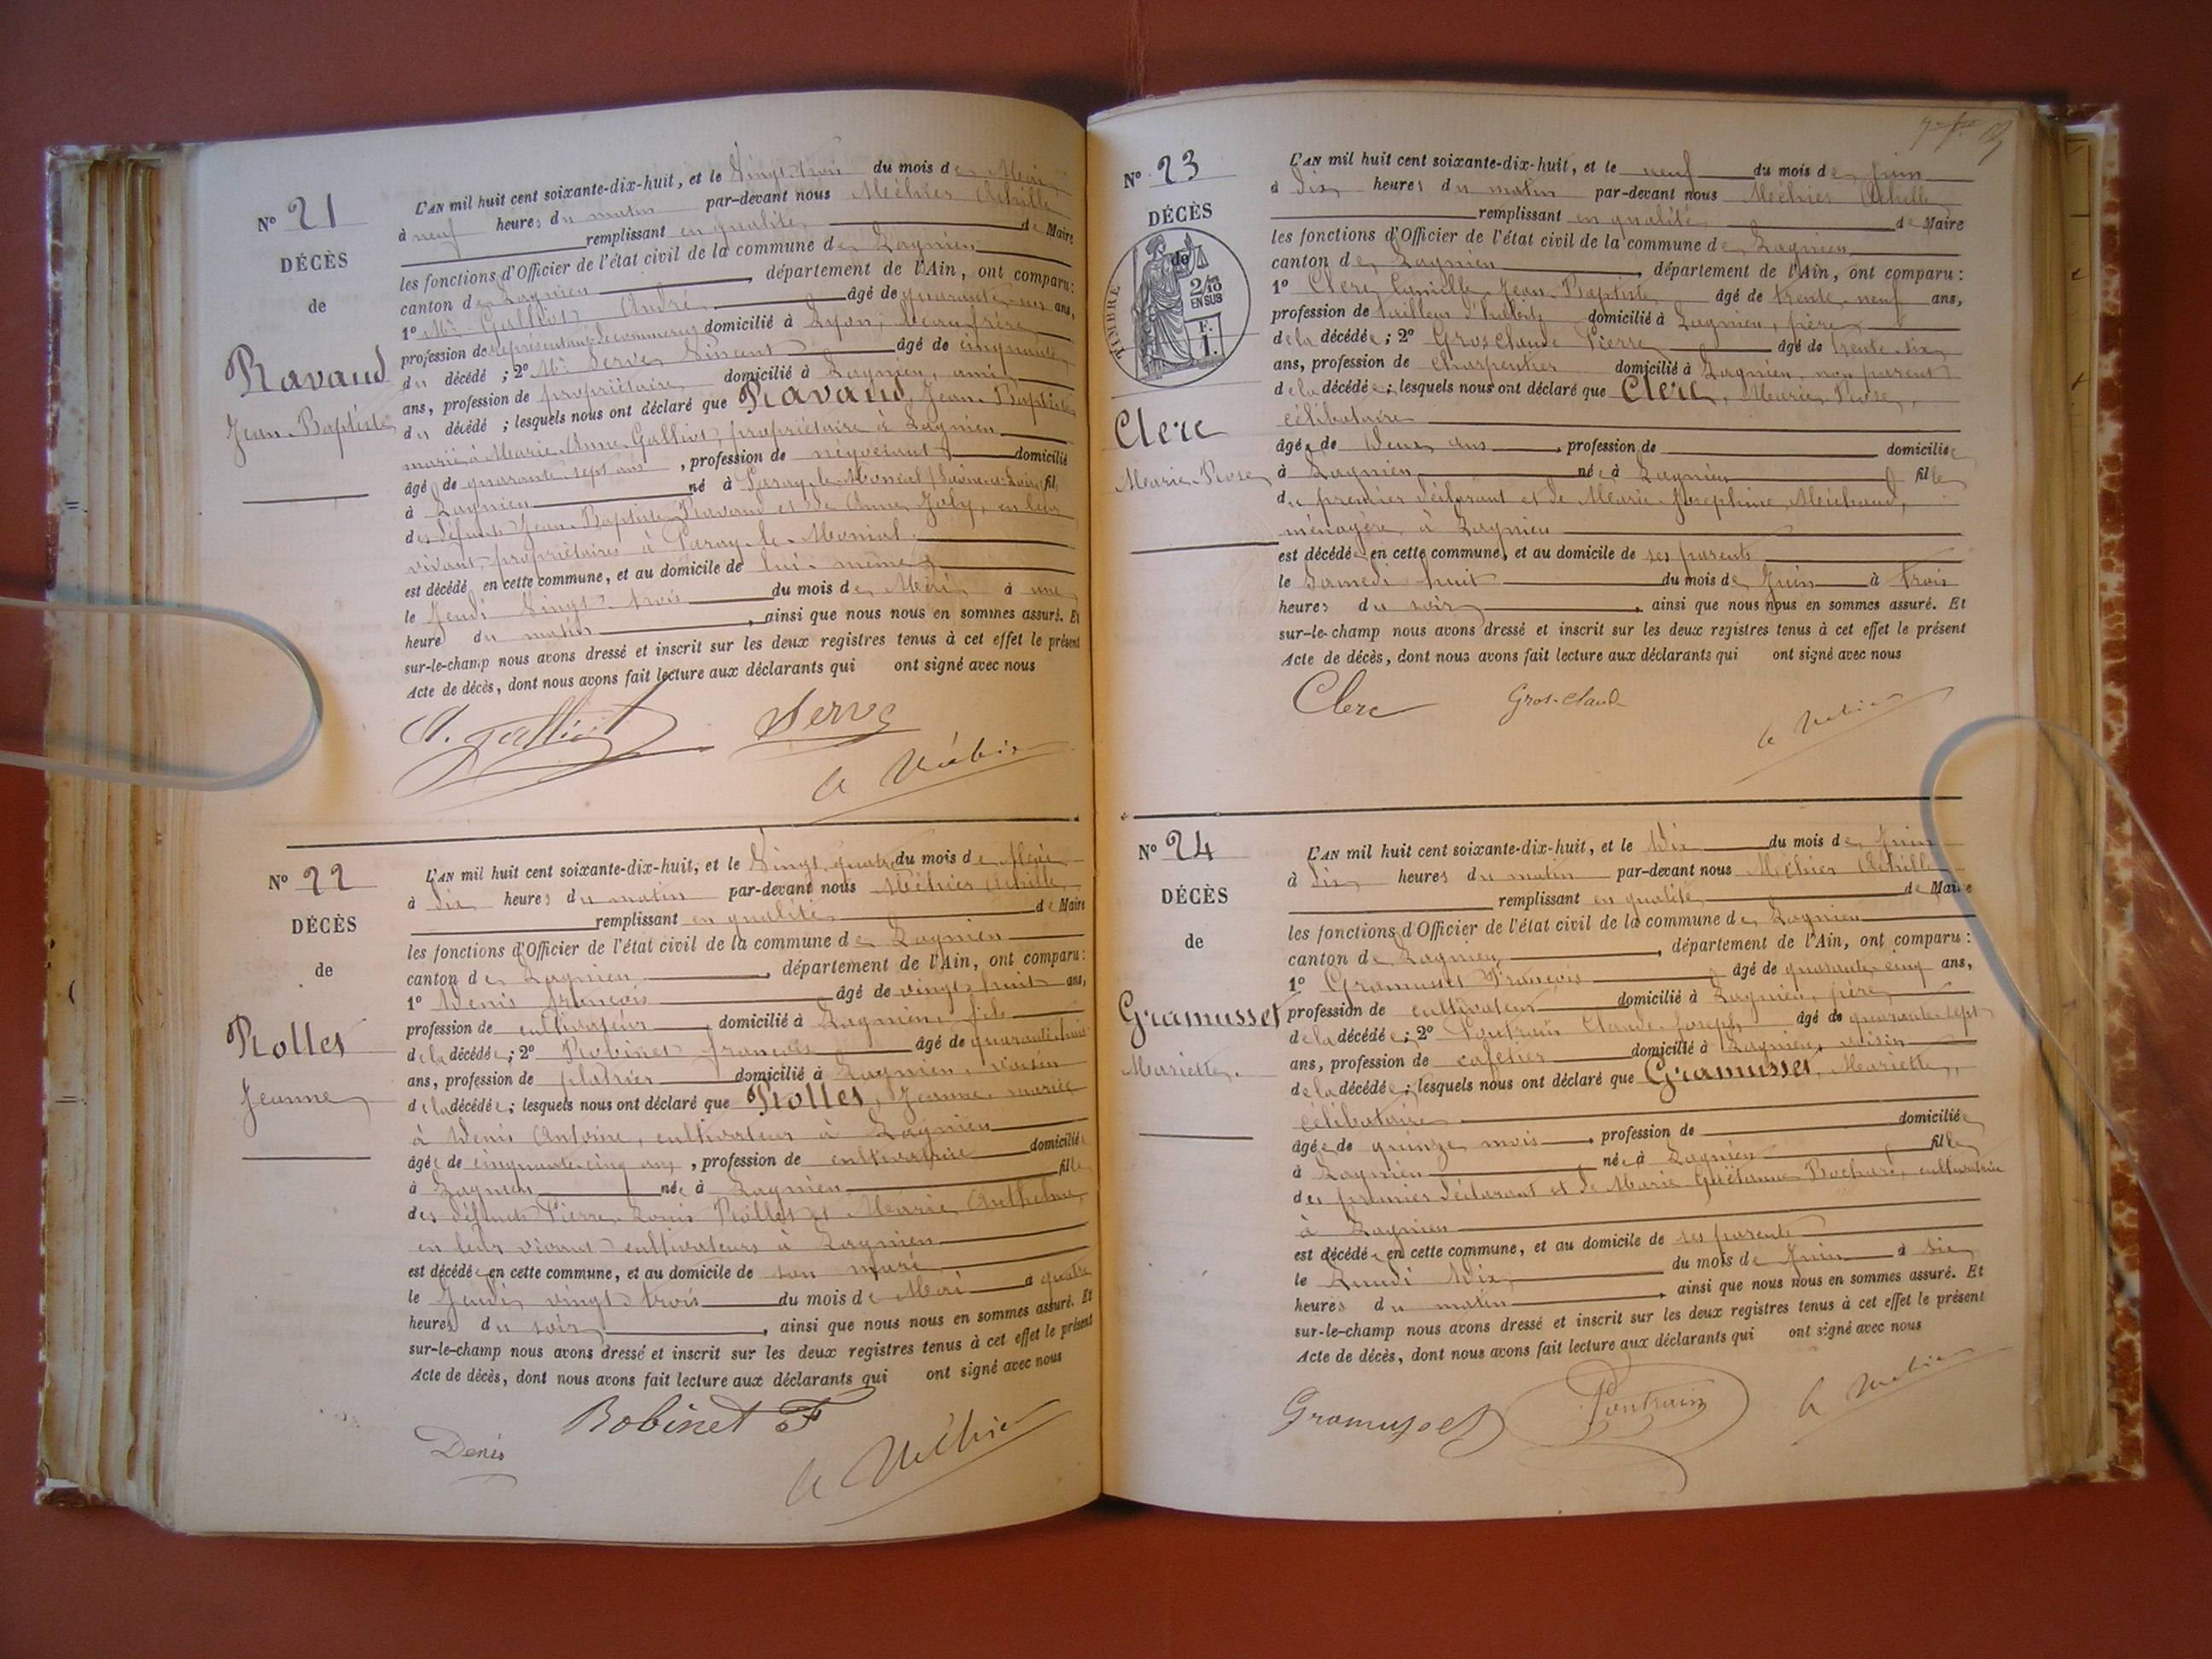 N° 21
DÉCÈS
de
Ravaud
Jean-Baptiste
L'AN mil huit cent soixante-dix-huit, et le Vingt trois du mois de Mai
à neuf heures du matin par-devant nous Méhier Achille
remplissant en qualité de Maire
les fonctions d'Officier de l'état civil de la commune de Lagnieu
canton de Lagnieu, département de l'Ain, ont comparu :
1° Mr Galliot André âgé de quarante-un ans,
profession de représentant de commerce domicilié à Lyon, beau-frère
du décédé ; 2° Mr Serve Vincent âgé de cinquante
ans, profession de propriétaire domicilié à Lagnieu, ami
du décédé ; lesquels nous ont déclaré que Ravaud, Jean-Baptiste
marié à Marie-Anne Galliot, propriétaire à Lagnieu
âgé de quarante sept ans, profession de négociant domicilié
à Lagnieu né à Paray-le-Monial (Saône-et-Loire) fils
des défunts Jean-Baptiste Ravaud et de Anne Joly, en leur
vivant propriétaires à Paray-le-Monial.
est décédé en cette commune, et au domicile de lui-même
le Jeudi Vingt-trois du mois de Mai à une
heure du matin, ainsi que nous nous en sommes assuré. Et
sur-le-champ nous avons dressé et inscrit sur les deux registres tenus à cet effet le présent
Acte de décès, dont nous avons fait lecture aux déclarants qui ont signé avec nous
A. Galliot Serve
A Méhier
N° 22
DÉCÈS
de
Rollet
Jeanne
L'AN mil huit cent soixante-dix-huit, et le Vingt quatre du mois de Mai
à dix heures du matin par-devant nous Méhier Achille
remplissant en qualité de Maire
les fonctions d'Officier de l'état civil de la commune de Lagnieu
canton de Lagnieu, département de l'Ain, ont comparu :
1° Denis François âgé de vingt-huit ans,
profession de cultivateur domicilié à Lagnieu, fils
de la décédée ; 2° Robinet François âgé de quarante-huit
ans, profession de plâtrier domicilié à Lagnieu, voisin
de la décédée ; lesquels nous ont déclaré que Rollet, Jeanne, mariée
à Denis Antoine, cultivateur à Lagnieu
âgée de cinquante-cinq ans, profession de cultivatrice domiciliée
à Lagnieu née à Lagnieu fille
des défunts Pierre-Louis Rollet et Marie Anthelme,
en leur vivant cultivateurs à Lagnieu
est décédée en cette commune, et au domicile de son mari
le Jeudi vingt-trois du mois de Mai à quatre
heures du soir, ainsi que nous nous en sommes assuré. Et
sur-le-champ nous avons dressé et inscrit sur les deux registres tenus à cet effet le présent
Acte de décès, dont nous avons fait lecture aux déclarants qui ont signé avec nous
Robinet F
Denis
A Méhier
N° 23
DÉCÈS
de
TIMBRE
2/10
EN SUS
F.
1.
Clerc
Marie-Rose
L'AN mil huit cent soixante-dix-huit, et le neuf du mois de Juin
à dix heures du matin par-devant nous Méhier Achille
remplissant en qualité de Maire
les fonctions d'Officier de l'état civil de la commune de Lagnieu
canton de Lagnieu, département de l'Ain, ont comparu :
1° Clerc Camille Jean-Baptiste âgé de trente-neuf ans,
profession de tailleur d'habits domicilié à Lagnieu, père
de la décédée ; 2° Grosclaude Pierre âgé de trente-six
ans, profession de charpentier domicilié à Lagnieu, non parent
de la décédée ; lesquels nous ont déclaré que Clerc, Marie-Rose,
célibataire
âgée de deux ans, profession de domiciliée
à Lagnieu née à Lagnieu fille
du premier déclarant et de Marie-Josephine Michaud,
ménagère à Lagnieu
est décédée en cette commune, et au domicile de ses parents
le Samedi huit du mois de Juin à trois
heures du soir, ainsi que nous nous en sommes assuré. Et
sur-le-champ nous avons dressé et inscrit sur les deux registres tenus à cet effet le présent
Acte de décès, dont nous avons fait lecture aux déclarants qui ont signé avec nous
Clerc Gros-claude
A Méhier
N° 24
DÉCÈS
de
Gramusset
Mariette.
L'AN mil huit cent soixante-dix-huit, et le Dix du mois de Juin
à dix heures du matin par-devant nous Méhier Achille
remplissant en qualité de Maire
les fonctions d'Officier de l'état civil de la commune de Lagnieu
canton de Lagnieu, département de l'Ain, ont comparu :
1° Gramusset François âgé de quarante-cinq ans,
profession de cultivateur domicilié à Lagnieu, père
de la décédée ; 2° Poutrain Claude-Joseph âgé de quarante-sept
ans, profession de cafetier domicilié à Lagnieu, voisin
de la décédée ; lesquels nous ont déclaré que Gramusset, Mariette,
célibataire
âgée de quinze mois, profession de domiciliée
à Lagnieu née à Lagnieu fille
du premier déclarant et de Marie-Gaëtanne Bochard, cultivatrice
à Lagnieu
est décédée en cette commune, et au domicile de ses parents
le Lundi Dix du mois de Juin à six
heures du matin, ainsi que nous nous en sommes assuré. Et
sur-le-champ nous avons dressé et inscrit sur les deux registres tenus à cet effet le présent
Acte de décès, dont nous avons fait lecture aux déclarants qui ont signé avec nous
Gramusset Poutrain A Méhier